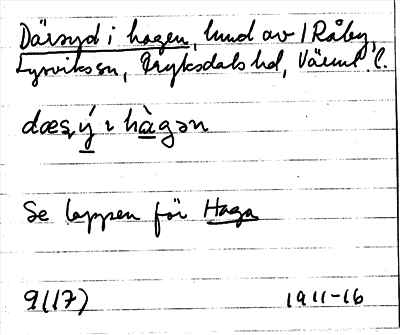 Därsyd i hagen, lund av 1 Råby,
Lysvikssn, Fryksdals hd, Värml. l.
dæs,ý ı hàgən
Se lappen för Haga
9(17) 1911-16